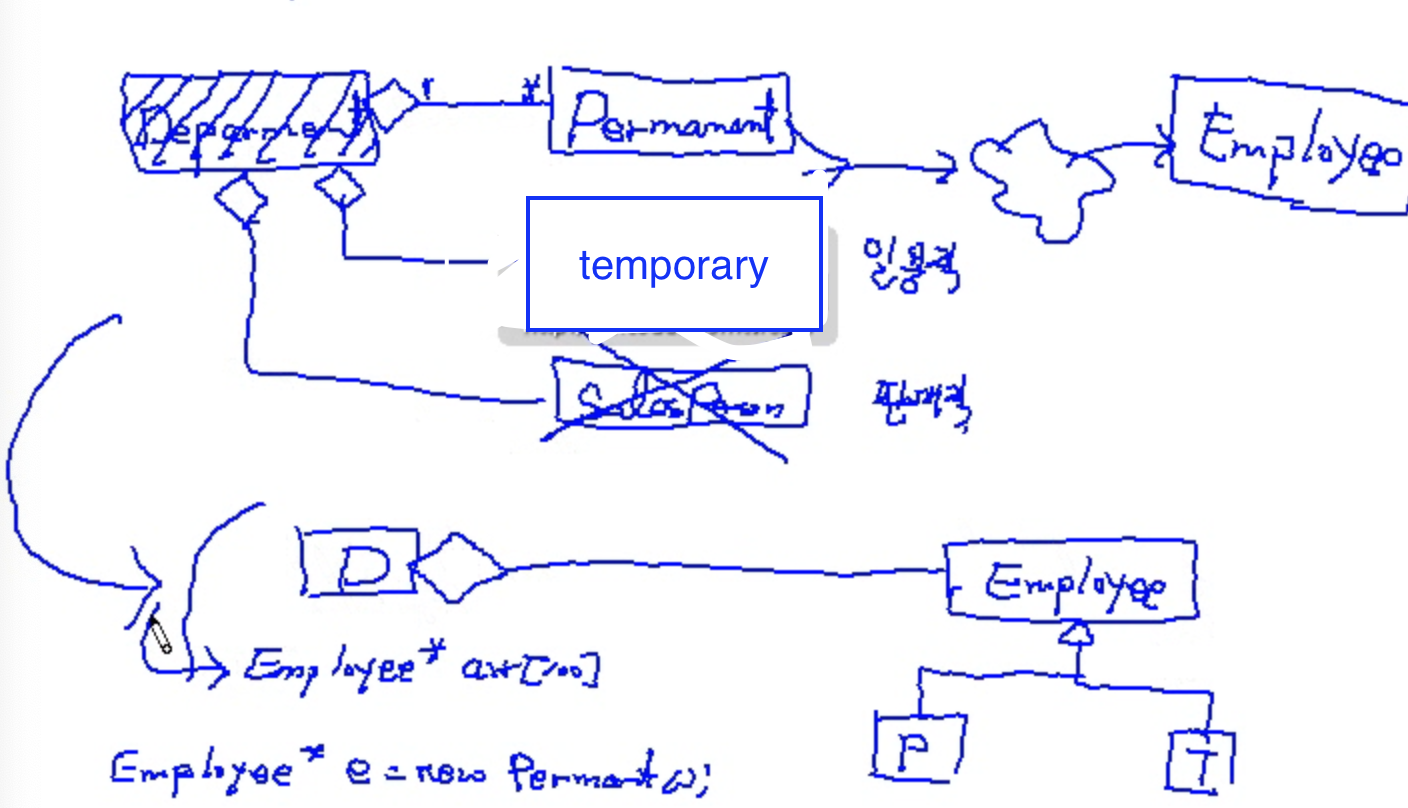 Department 1 * Permanent
Employee
temporary
일용직
Sales Person
D
Employee
Employee* arr[100]
P
T
Employee* e = new Permant();